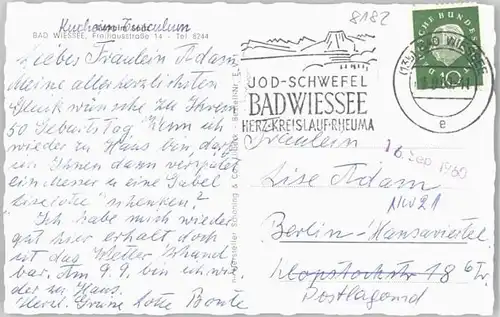 Kurheim Saculum
BAD WIESSEE, Freihausstraße 14 - Tel 8244
Liebes Fräulein Adam,
Meine allerherzlichsten
Glückwünsche zu Ihrem
50 Geburtstag. Wenn ich
wieder zu Haus bin, darf
ich Ihnen dann verspätet
ein Messer u eine Gabel
schenken?
Ich habe mich wieder
gut hier erholt, doch
ist das Wetter
bar. Am 9.9. bin ich wie
der zu Haus.
Herzl. Grüße Lotte Bonte
8182
DEUTSCHE BUNDESPOST
10
BAD WIESSEE
e
JOD-SCHWEFEL
BAD WIESSEE
HERZ-KREISLAUF-RHEUMA
Fräulein
16. Sep. 1960
Lise Adam
NW 21
Berlin-Hansaviertel
Klopstockstr 18
Postlagernd